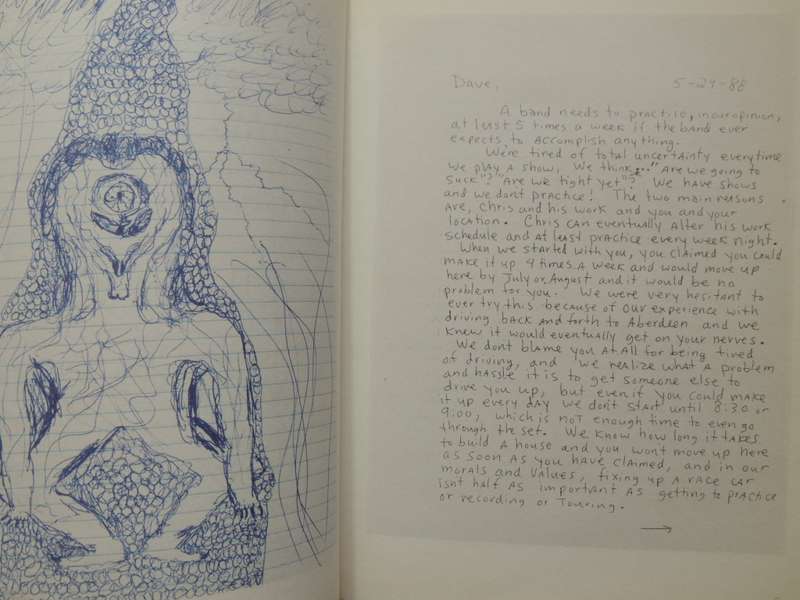 Dave, 5-29-88
A band needs to practice, in our opinion,
at least 5 times a week if the band ever
expects to accomplish anything.
We're tired of total uncertainty everytime
we play a show, we think.. "Are we going to
suck"? "Are we tight yet"? We have shows
and we dont practice! The two main reasons
are, Chris and his work and you and your
location. Chris can eventually alter his work
schedule and at least practice every week night.
When we started with you, you claimed you could
make it up 4 times a week and would move up
here by July or August and it would be no
problem for you. We were very hesitant to
ever try this because of our experience with
driving back and forth to Aberdeen and we
knew it would eventually get on your nerves.
We dont blame you at all for being tired
of driving, and we realize what a problem
and hassle it is to get someone else to
drive you up, but even if you could make
it up every day we dont start until 8:30 or
9:00, which is not enough time to even go
through the set. We know how long it takes
to build a house and you wont move up here
as soon as you have claimed, and in our
morals and values, fixing up a race car
isnt half as important as getting to practice
or recording or Touring.